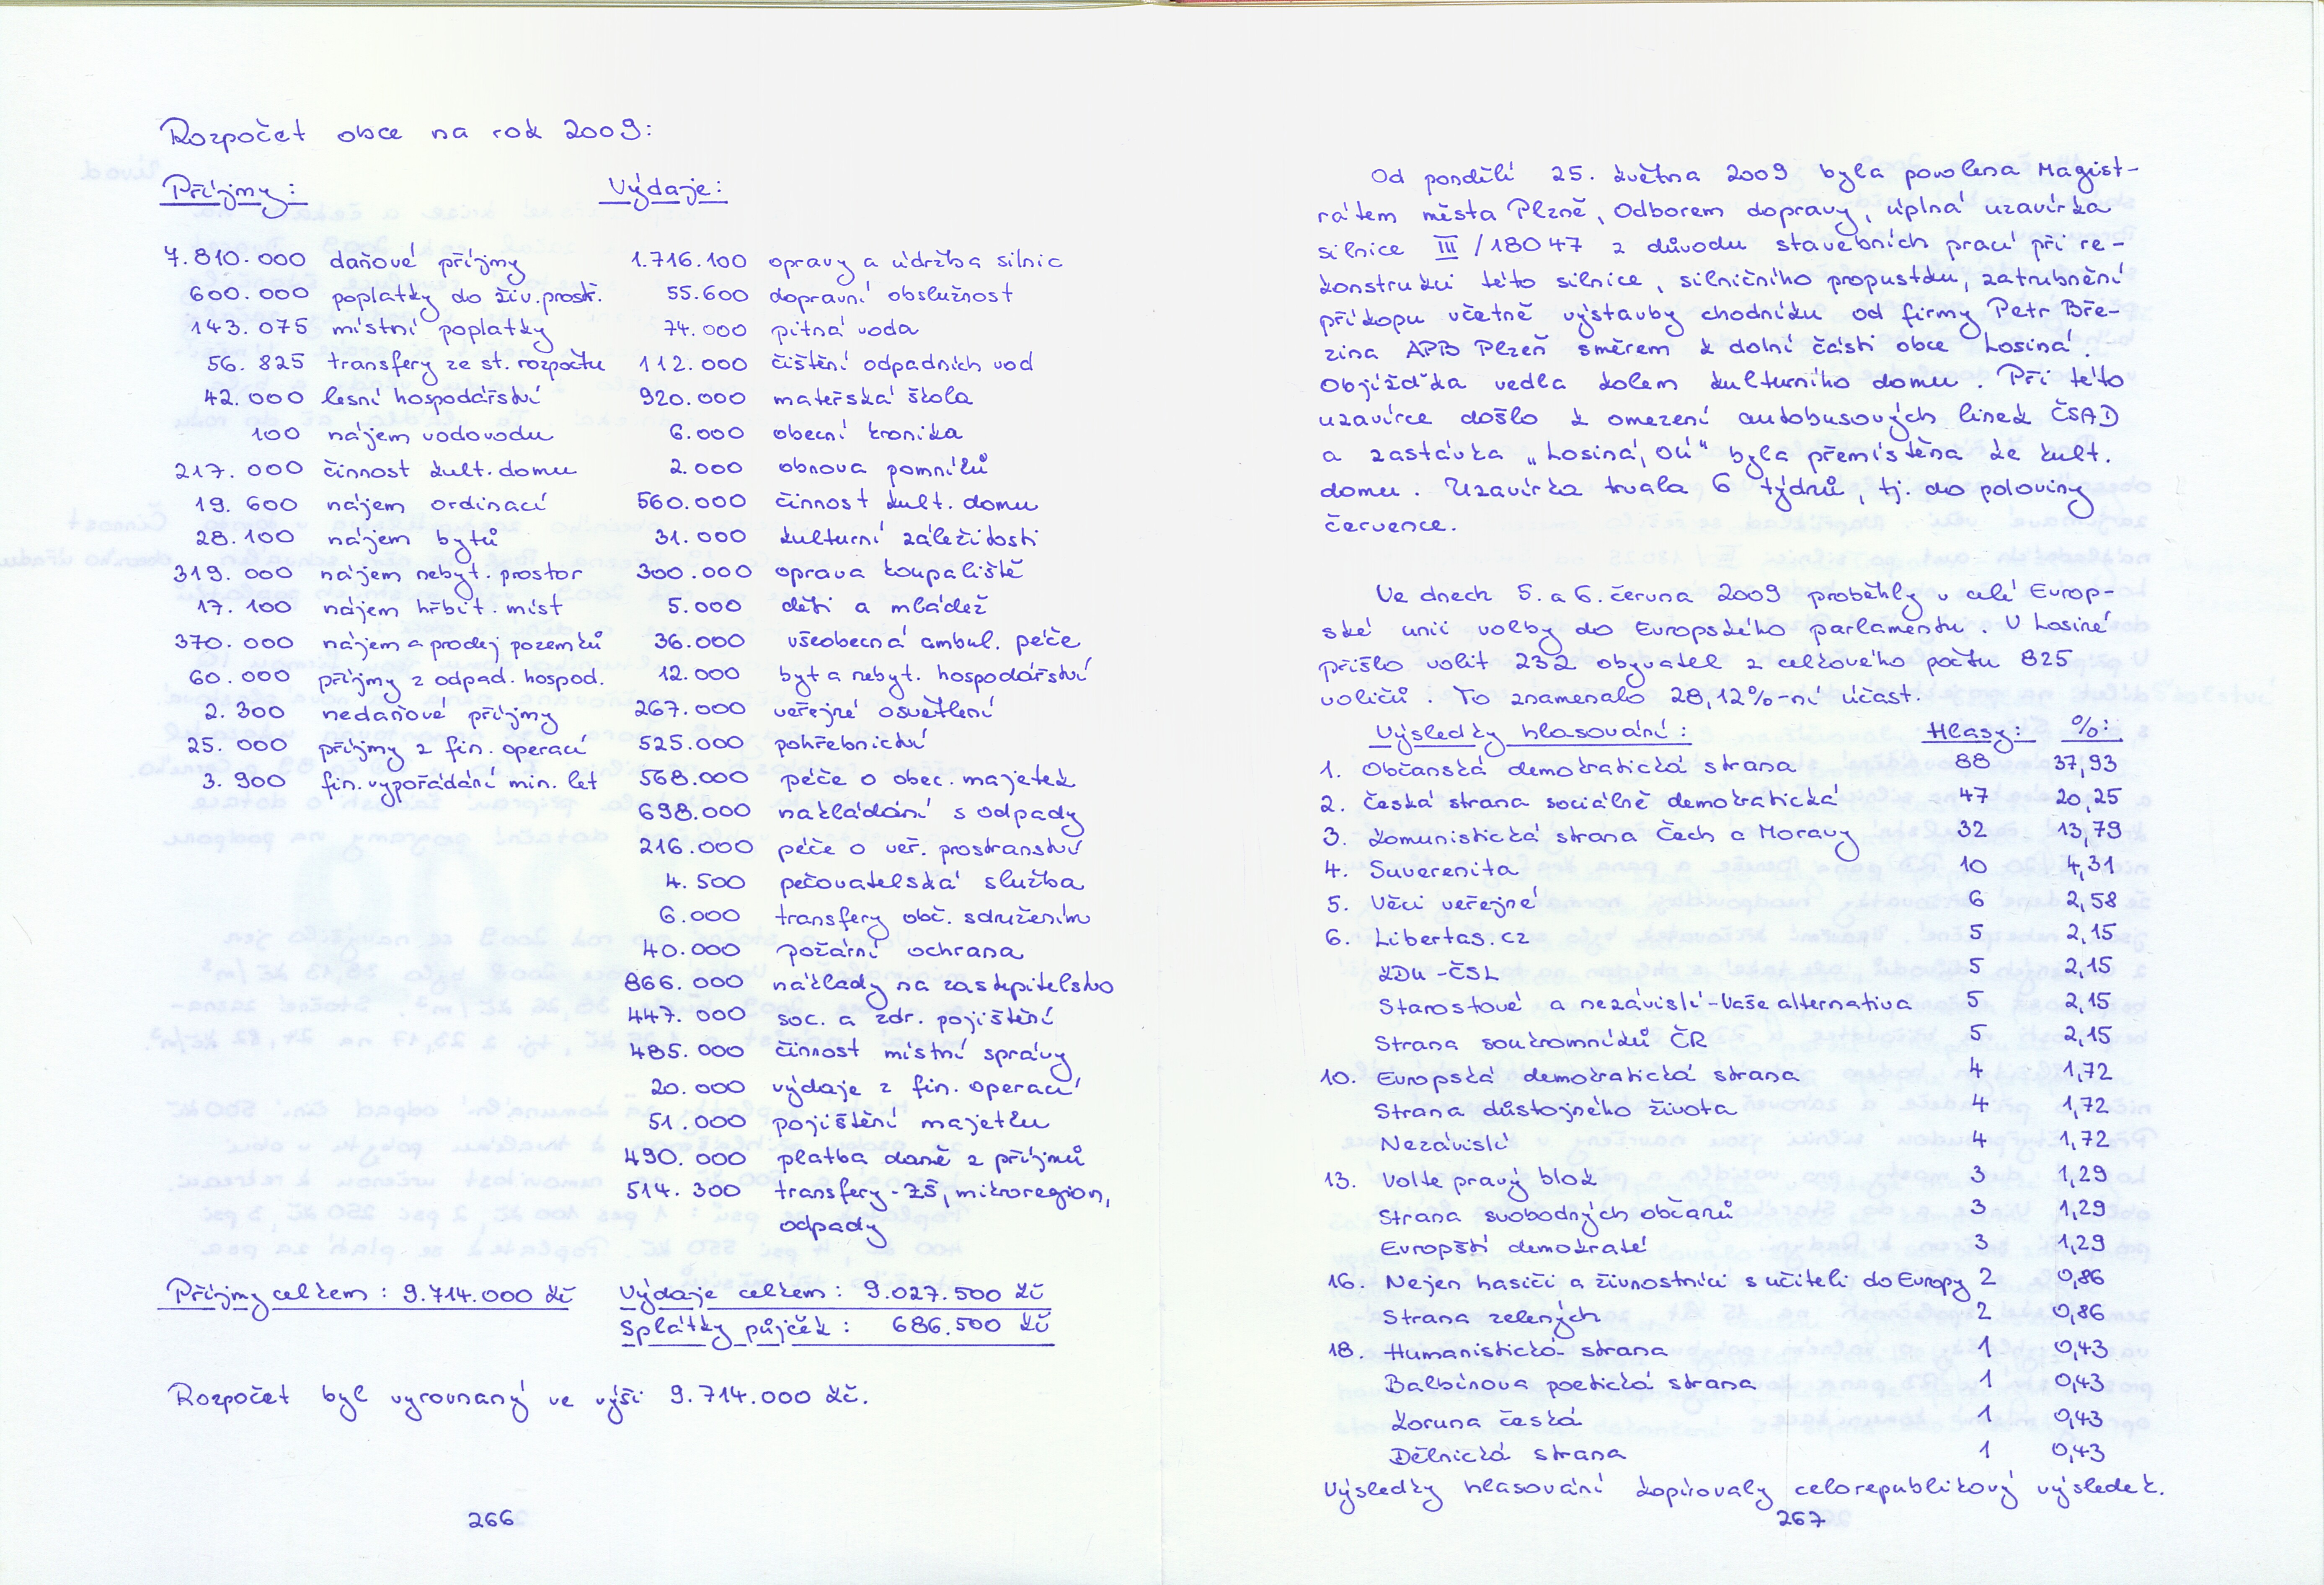 Rozpočet obce na rok 2009:
Příjmy: Výdaje:
7.810.000 daňové příjmy 1.716.100 opravy a údržba silnic
600.000 poplatky do živ.prostř. 55.600 dopravní obslužnost
143.075 místní poplatky 74.000 pitná voda
56.825 transfery ze st. rozpočtu 112.000 čištění odpadních vod
42.000 lesní hospodářství 920.000 mateřská škola
100 nájem vodovodu 6.000 obecní kronika
217.000 činnost kult. domu 2.000 obnova pomníků
19.600 nájem ordinací 560.000 činnost kult. domu
28.100 nájem bytů 31.000 kulturní záležitosti
319.000 nájem nebyt. prostor 300.000 oprava koupaliště
17.100 nájem hřbit. míst 5.000 děti a mládež
370.000 nájem a prodej pozemků 36.000 všeobecná ambul. péče
60.000 příjmy z odpad. hospod. 12.000 byt a nebyt. hospodářství
2.300 nedaňové příjmy 267.000 veřejné osvětlení
25.000 příjmy z fin. operací 525.000 pohřebnictví
3.900 fin. vypořádání min. let 568.000 péče o obec. majetek
698.000 nakládání s odpady
216.000 péče o veř. prostranství
4.500 pečovatelská služba
6.000 transfery obč. sdružením
40.000 požární ochrana
866.000 náklady na zastupitelstvo
447.000 soc. a zdr. pojištění
485.000 činnost místní správy
20.000 výdaje z fin. operací
51.000 pojištění majetku
490.000 platba daně z příjmů
514.300 transfery - ZŠ, mikroregion,
odpady
Příjmy celkem: 9.714.000 Kč Výdaje celkem: 9.027.500 Kč
Splátky půjček: 686.500 Kč
Rozpočet byl vyrovnaný ve výši 9.714.000 Kč.
266
Od pondělí 25. května 2009 byla povolena Magist-
rátem města Plzně, Odborem dopravy, úplná uzavírka
silnice III/18047 z důvodu stavebních prací při re-
konstrukci této silnice, silničního propustku, zatrubnění
příkopu včetně výstavby chodníku od firmy Petr Bře-
zina APB Plzeň směrem k dolní části obce Losiná.
Objížďka vedla kolem kulturního domu. Při této
uzavírce došlo k omezení autobusových linek ČSAD
a zastávka „Losiná, OÚ" byla přemístěna ke kult.
domu. Uzavírka trvala 6 týdnů, tj. do poloviny
července.
Ve dnech 5. a 6. června 2009 proběhly v celé Evrop-
ské unii volby do Evropského parlamentu. V Losiné
přišlo volit 232 obyvatel z celkového počtu 825
voličů. To znamenalo 28,12%-ní účast.
Výsledky hlasování: Hlasy: %:
1. Občanská demokratická strana 88 37,93
2. Česká strana sociálně demokratická 47 20,25
3. Komunistická strana Čech a Moravy 32 13,79
4. Suverenita 10 4,31
5. Věci veřejné 6 2,58
6. Libertas.cz 5 2,15
KDU-ČSL 5 2,15
Starostové a nezávislí-Vaše alternativa 5 2,15
Strana soukromníků ČR 5 2,15
10. Evropská demokratická strana 4 1,72
Strana důstojného života 4 1,72
Nezávislí 4 1,72
13. Volte pravý blok 3 1,29
Strana svobodných občanů 3 1,29
Evropští demokraté 3 1,29
16. Nejen hasiči a živnostníci s učiteli do Evropy 2 0,86
Strana zelených 2 0,86
18. Humanistická strana 1 0,43
Balbínova poetická strana 1 0,43
Koruna česká 1 0,43
Dělnická strana 1 0,43
Výsledky hlasování kopírovaly celorepublikový výsledek.
267